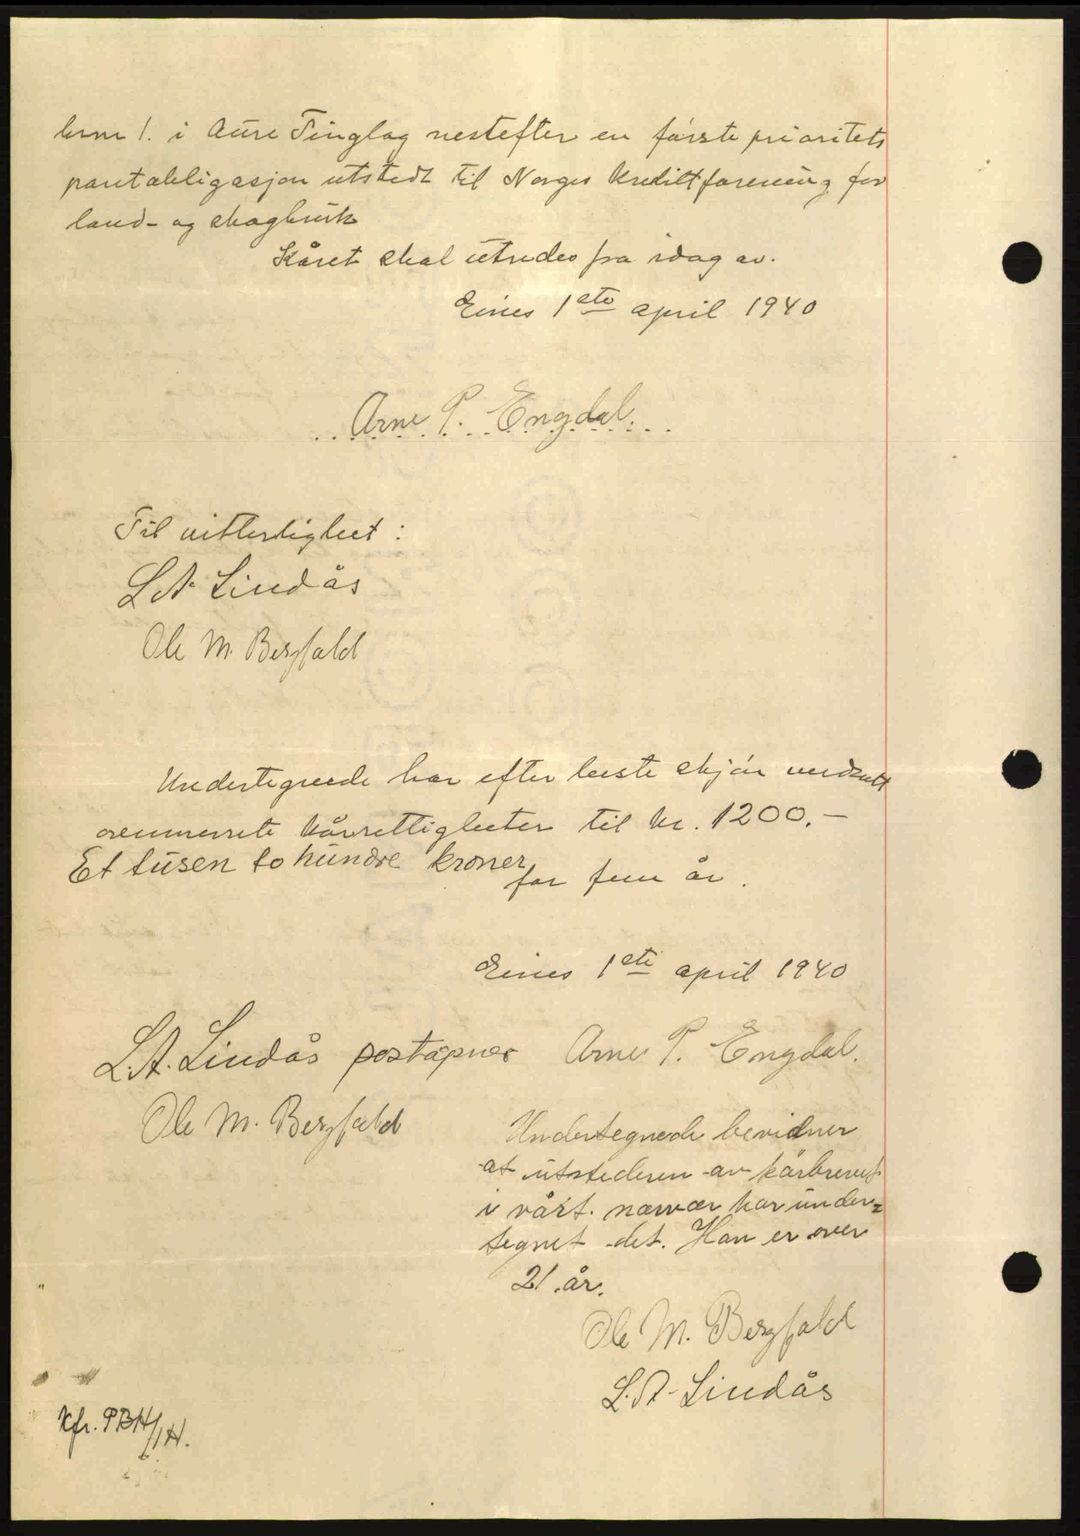 brnr 1. i Aure Tinglag nestefter en første prioritets
pantobligasjon utstedt til Norges Kredittforening for
land- og skogbruk
Kåret skal utredes fra idag av.
Eines 1ste april 1940
Arne P. Engdal.
Til vitterlighet:
L.A. Lindås
Ole M. Bergfald
Undertegnede har efter beste skjøn verdsatt
ovennevnte kårrettigheter til kr. 1200.-
Et tusen to hundre kroner for fem år.
Eines 1ste april 1940
L.A. Lindås poståpner Arne P. Engdal.
Ole M. Bergfald
Undertegnede bevidner
at utstederen av kårbrevet
i vårt nærvær har under=
tegnet det. Han er over
21 år.
Ole M. Bergfald
L.A. Lindås
Kfr. PBH/1H.